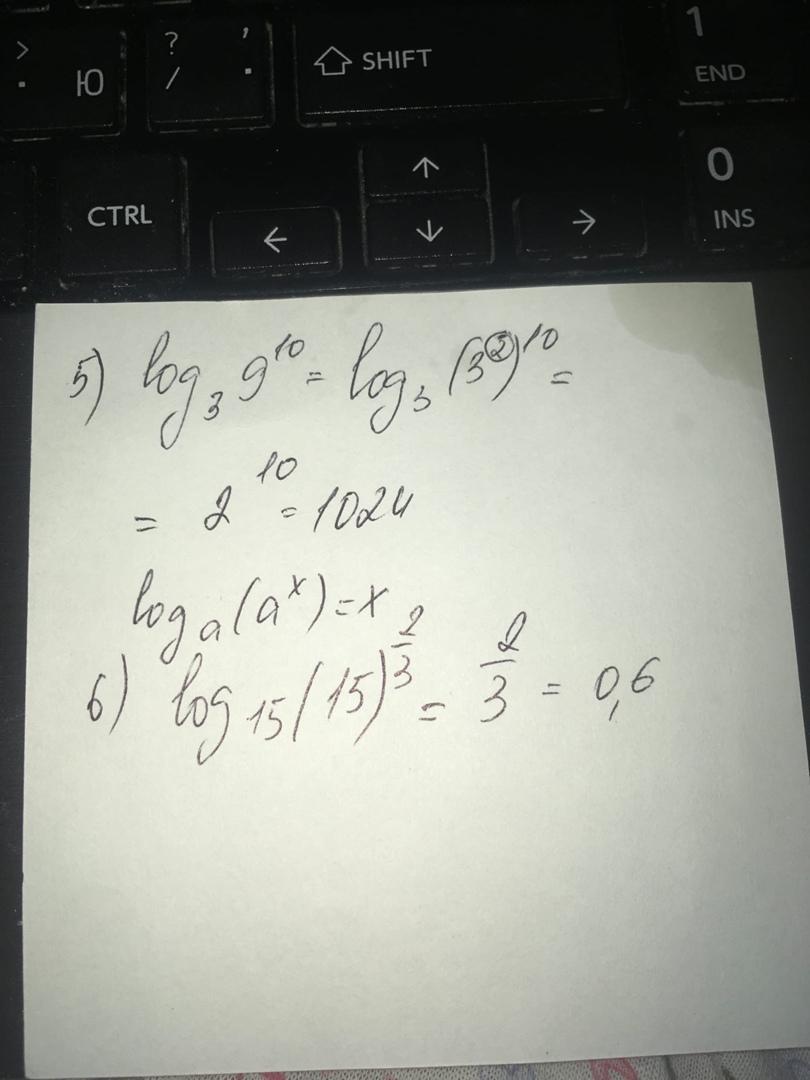 > . Ю ? / , . SHIFT 1 END
CTRL ↑ 0 INS
← ↓ →
5) log₃ 9¹⁰ = log₃ (3²)¹⁰ =
= 2¹⁰ = 1024
logₐ(aˣ) = x
6) log₁₅(15)^(2/3) = 2/3 = 0,6